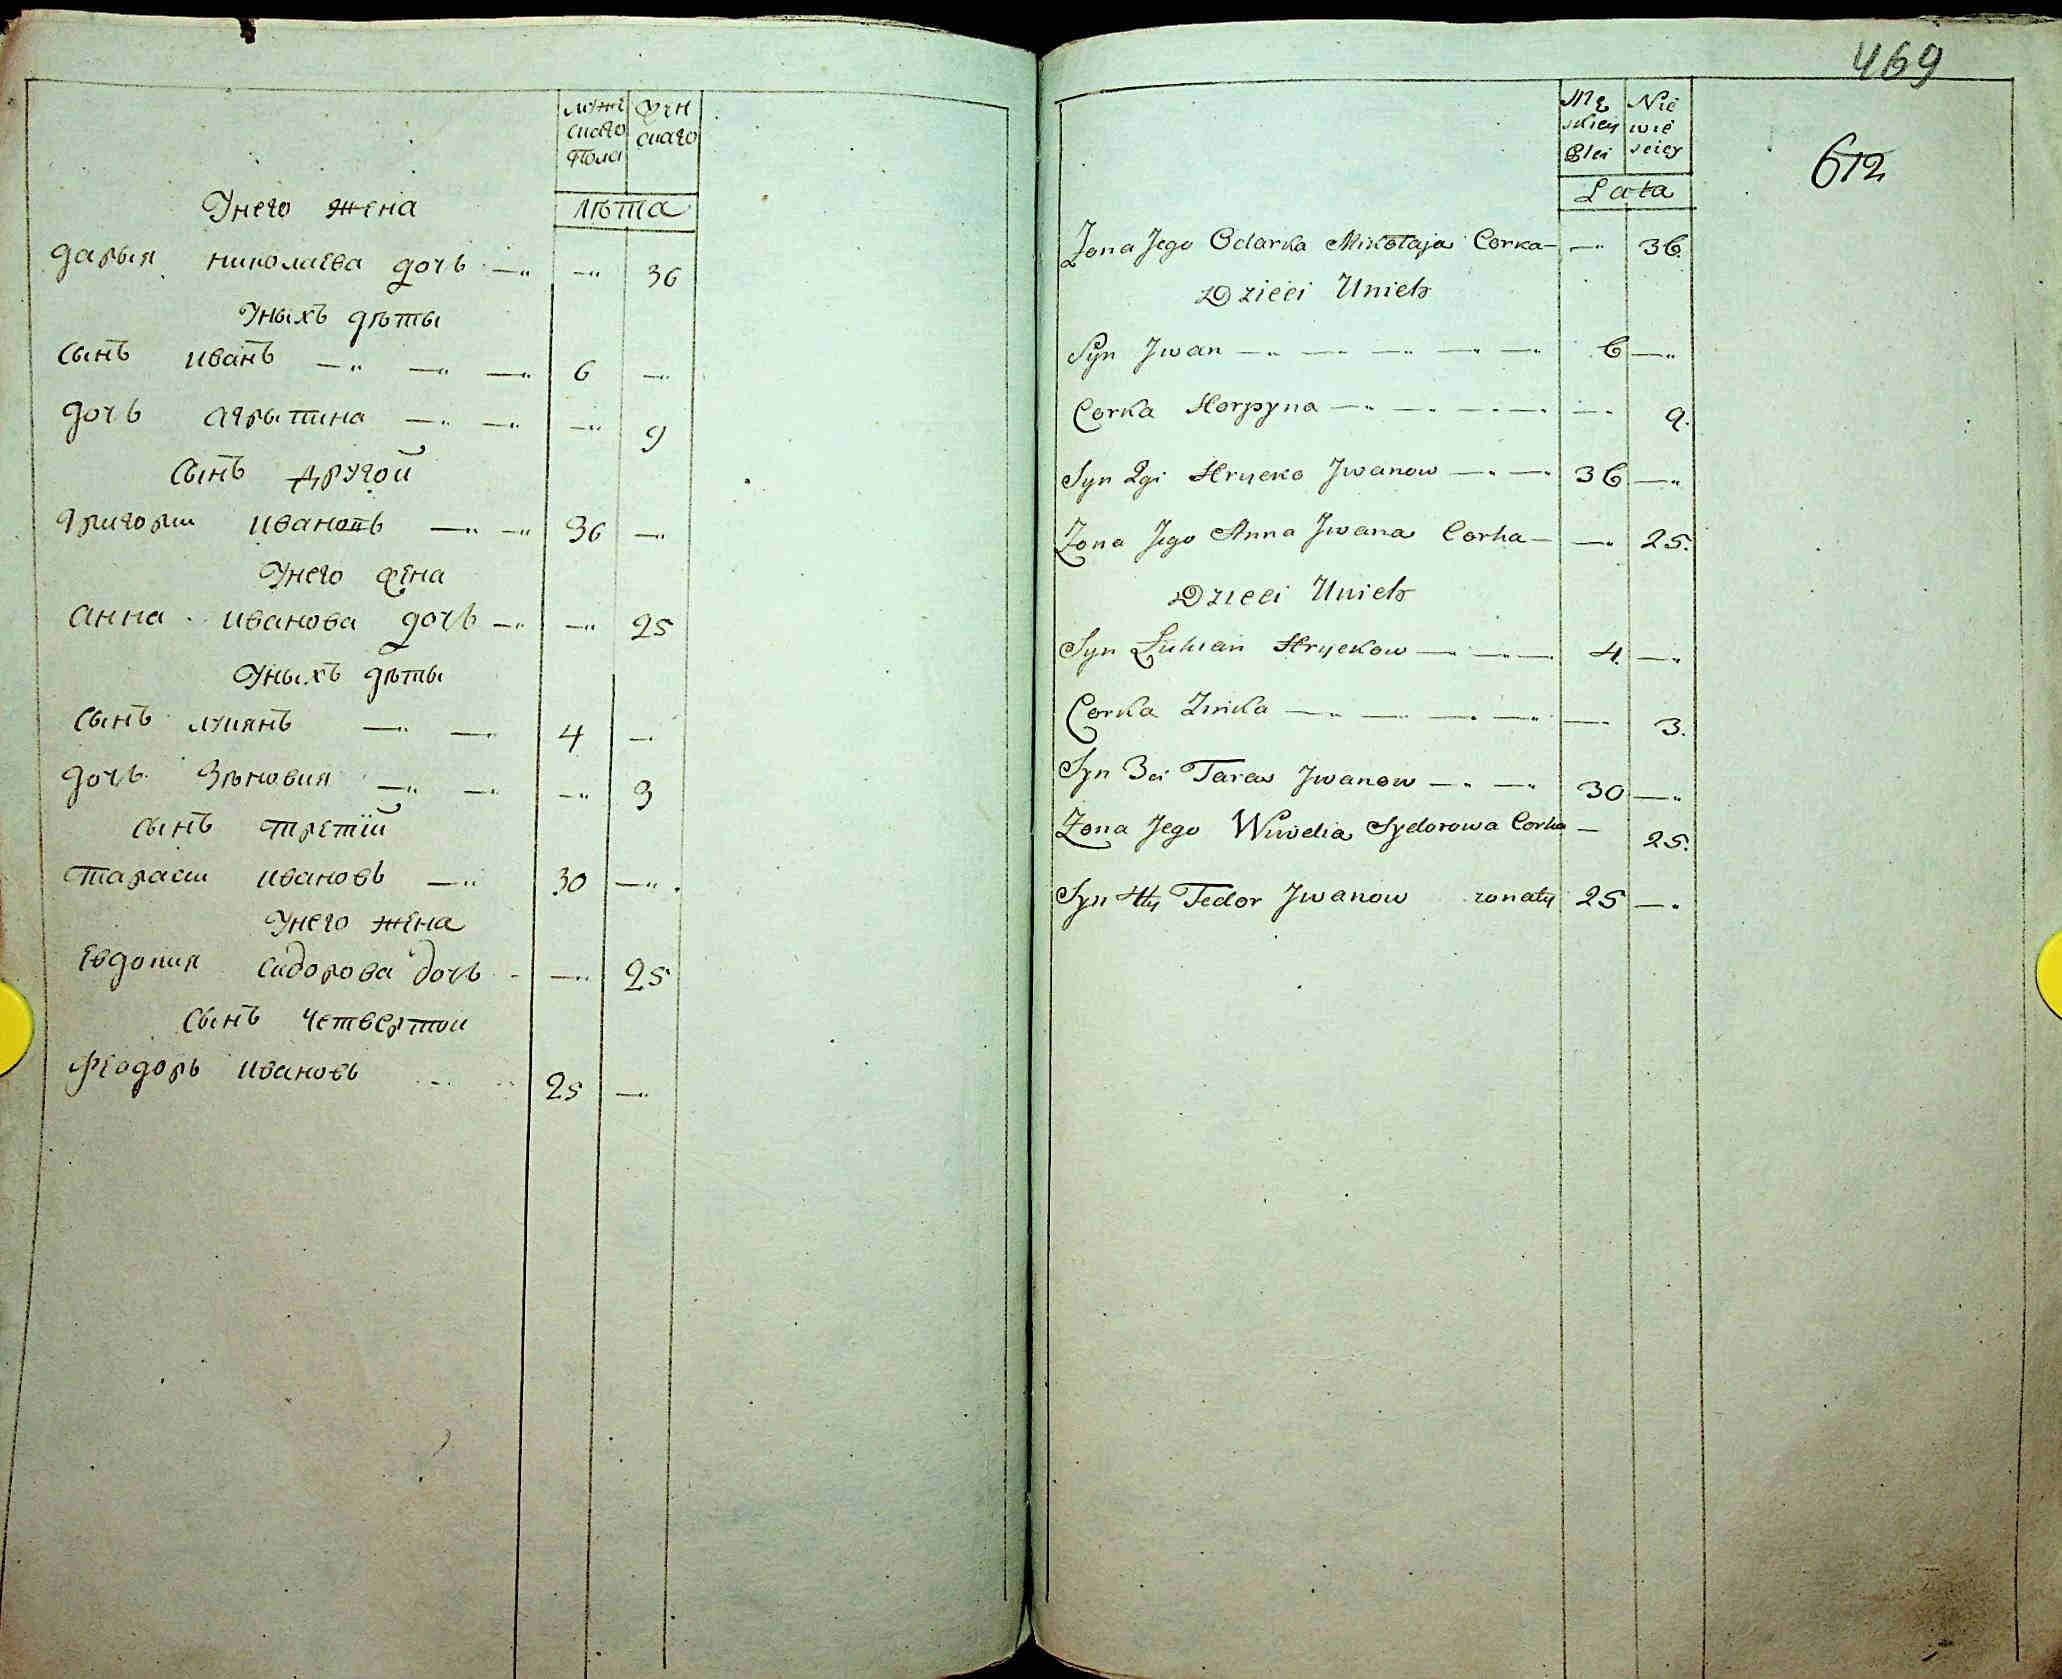 мужескаго Пола
женскаго
лѣта
Унего жена
дарья николаева дочь — — 36
Уныхъ дѣты
Сынъ иванъ — — — 6 —
дочь агрыпина — — — 9
Сынъ другой
григории ивановъ — — 36 —
Унего жена
анна иванова дочь — — 25
Уныхъ дѣты
Сынъ лукянъ — — 4 —
дочь Зѣновия — — — 3
Сынъ третїй
тараси ивановъ — 30 —
Унего жена
Евдокия Сидорова дочь - — 25
Сынъ четвертои
феодоръ ивановъ 25 —
469
612
Męskiey Płci
Niewiesciey
Lata
Zona Jego Odarka Mikołaja Corka — — 36.
Dzieci Unich
Syn Jwan — — — — — 6 —
Corka Horpyna — — — — — 9.
Syn 2gi Hrycko Jwanow — — 36 —
Zona Jego Anna Jwana Corka — — 25.
Dzieci Unich
Syn Lukian Hryckow — — — 4. —
Corka Zinka — — — — — 3.
Syn 3ci Taras Jwanow — — 30 —
Zona Jego Wuvdia Sydorowa Corka — 25.
Syn 4ty Fedor Jwanow zonaty 25 —